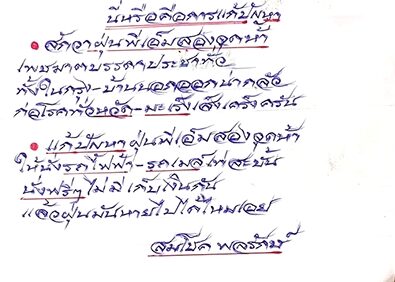 นี่หรือคือการแก้ปัญหา
สักวาฝุ่นพีเอ็มสองจุดห้า
เพชฌาตบรรดาประชาทั่ว
ทั้งในกรุง-บ้านนอกออกน่ากลัว
ก่อโรคทั่วหวัด-มะเร็งเส็งเคร็งครัน
แก้ปัญหาฝุ่นพีเอ็มสองจุดห้า
ให้นั่งรถไฟฟ้า-รถเมล์
นั่งฟรีๆไม่มีเก็บเงินกัน
แล้วฝุ่นมันหายไปได้ไหมเอย
สมโชค พลรักษ์